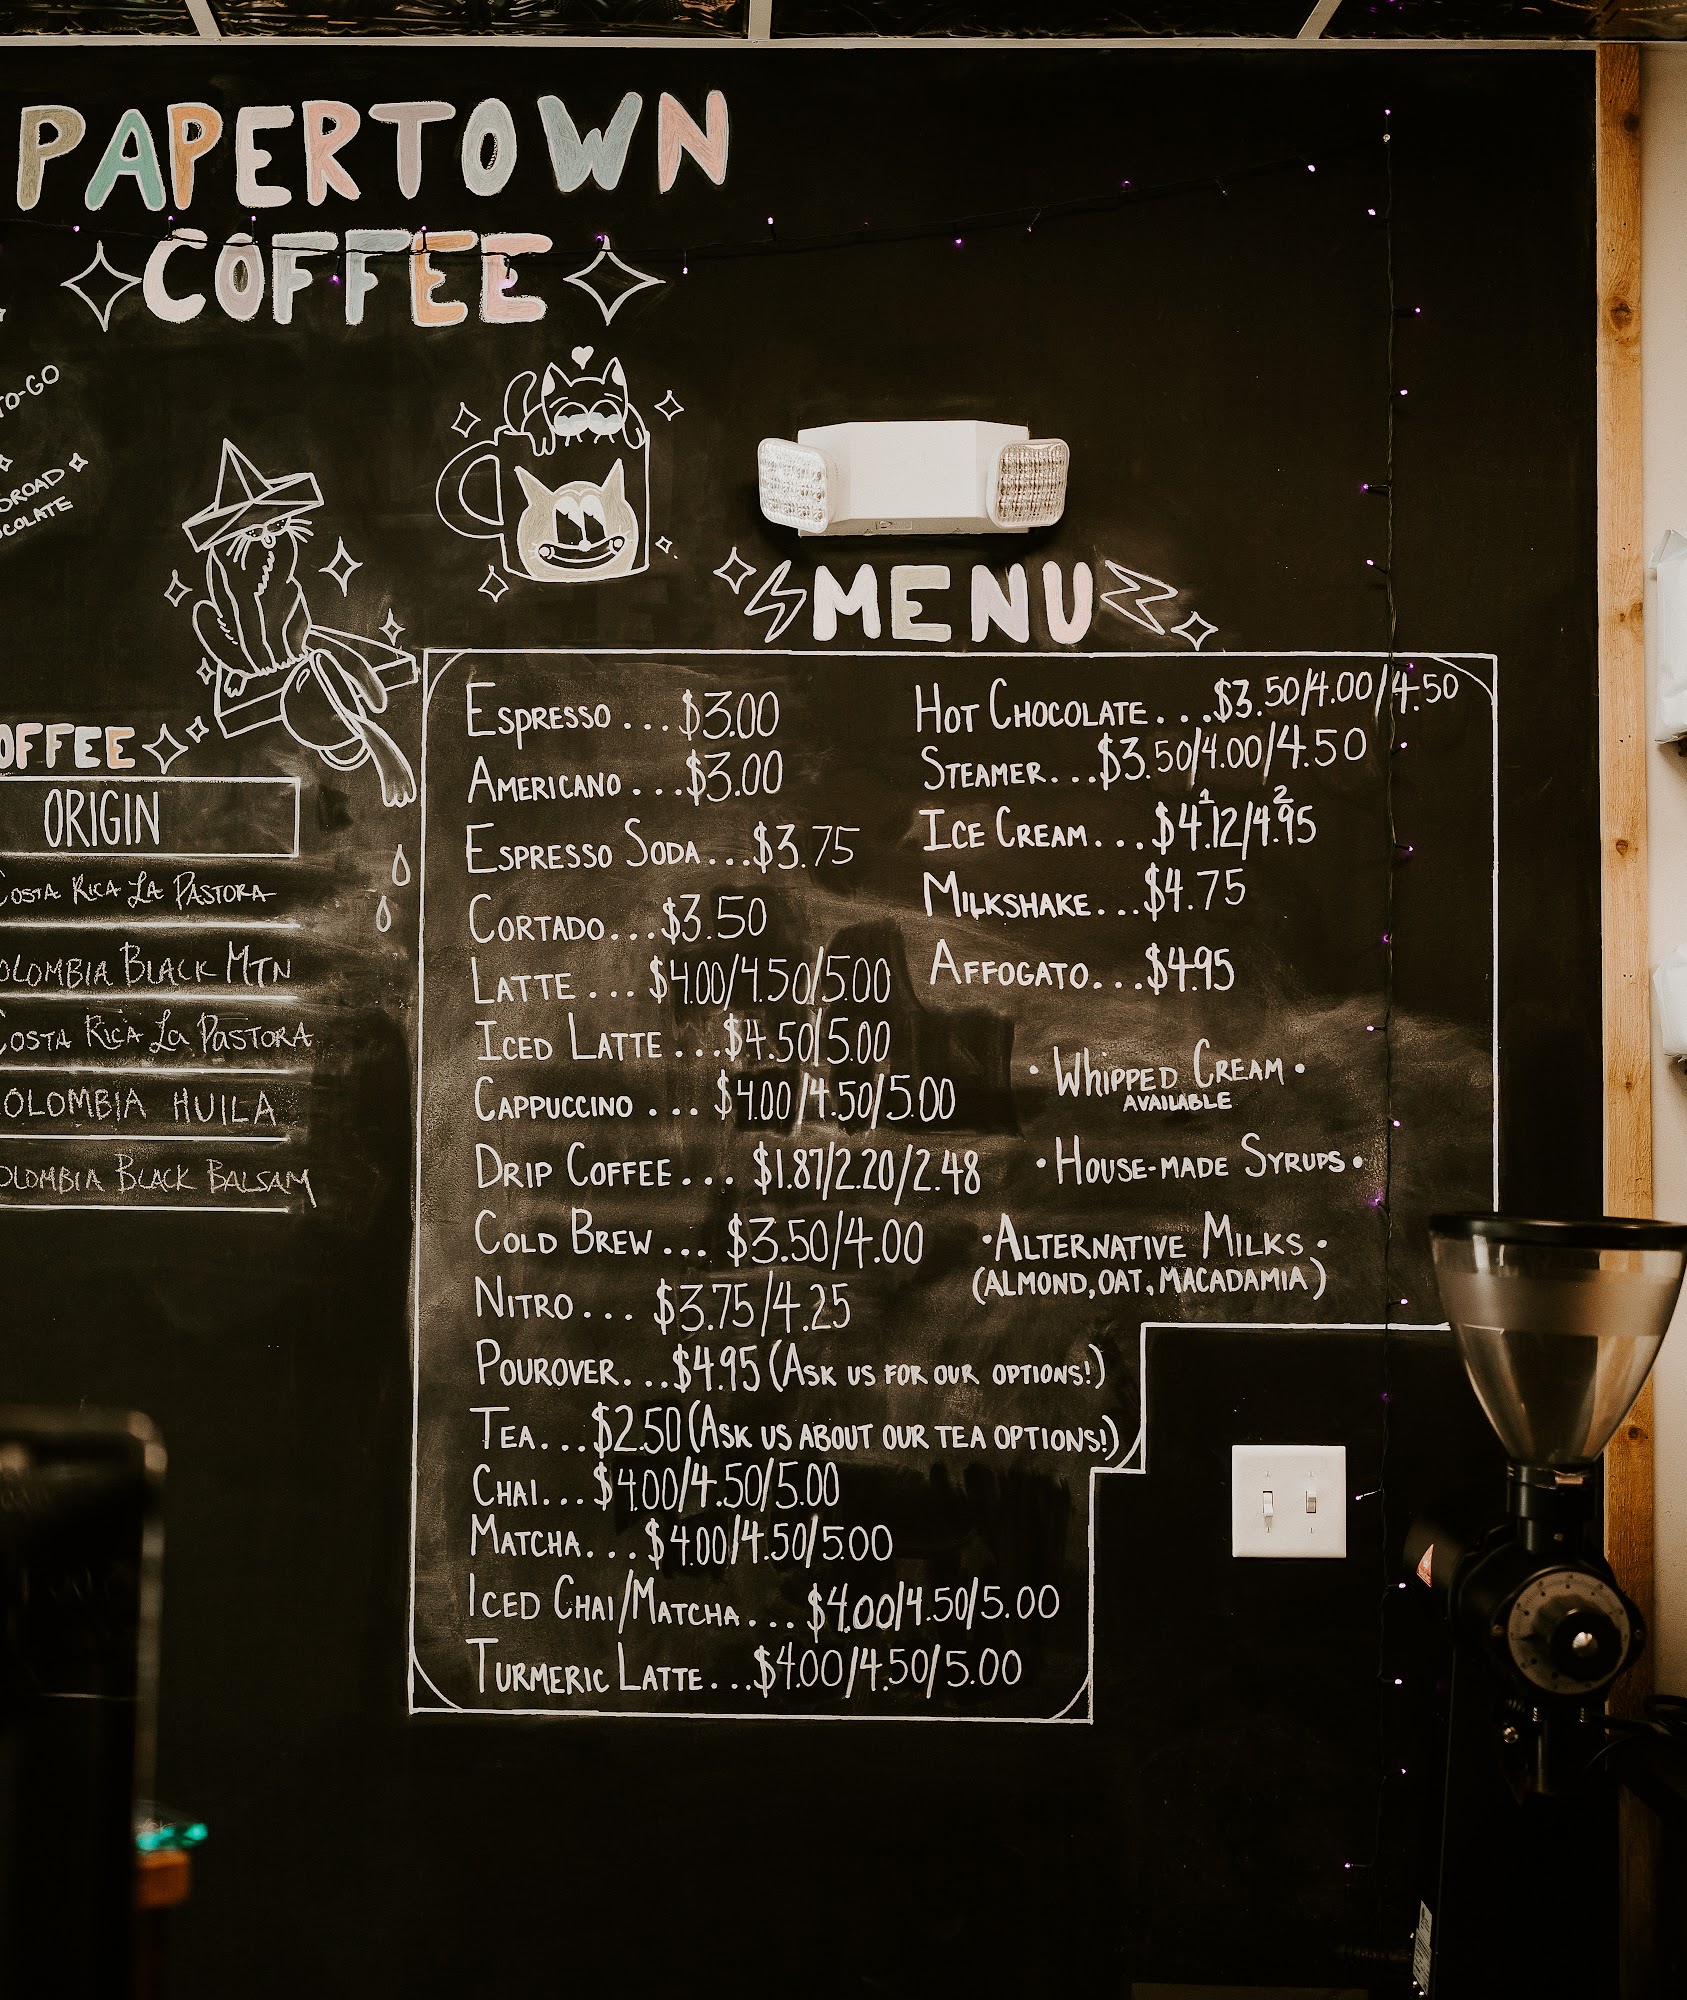 PAPERTOWN
COFFEE
TO-GO
ORIGIN
COSTA RICA LA PASTORA
BLACK MTN
COSTA RICA LA PASTORA
HUILA
BLACK BALSAM
MENU
ESPRESSO...$3.00
AMERICANO...$3.00
ESPRESSO SODA...$3.75
CORTADO...$3.50
LATTE...$4.00/4.50/5.00
ICED LATTE...$4.50/5.00
CAPPUCCINO...$4.00/4.50/5.00
DRIP COFFEE...$1.87/2.20/2.48
COLD BREW...$3.50/4.00
NITRO...$3.75/4.25
POUROVER...$4.95 (ASK US FOR OUR OPTIONS!)
TEA...$2.50 (ASK US ABOUT OUR TEA OPTIONS!)
CHAI...$4.00/4.50/5.00
MATCHA...$4.00/4.50/5.00
ICED CHAI/MATCHA...$4.00/4.50/5.00
TURMERIC LATTE...$4.00/4.50/5.00
HOT CHOCOLATE...$3.50/4.00/4.50
STEAMER...$3.50/4.00/4.50
1 2
ICE CREAM...$4.12/4.95
MILKSHAKE...$4.75
AFFOGATO...$4.95
• WHIPPED CREAM •
AVAILABLE
• HOUSE-MADE SYRUPS •
• ALTERNATIVE MILKS •
(ALMOND, OAT, MACADAMIA)